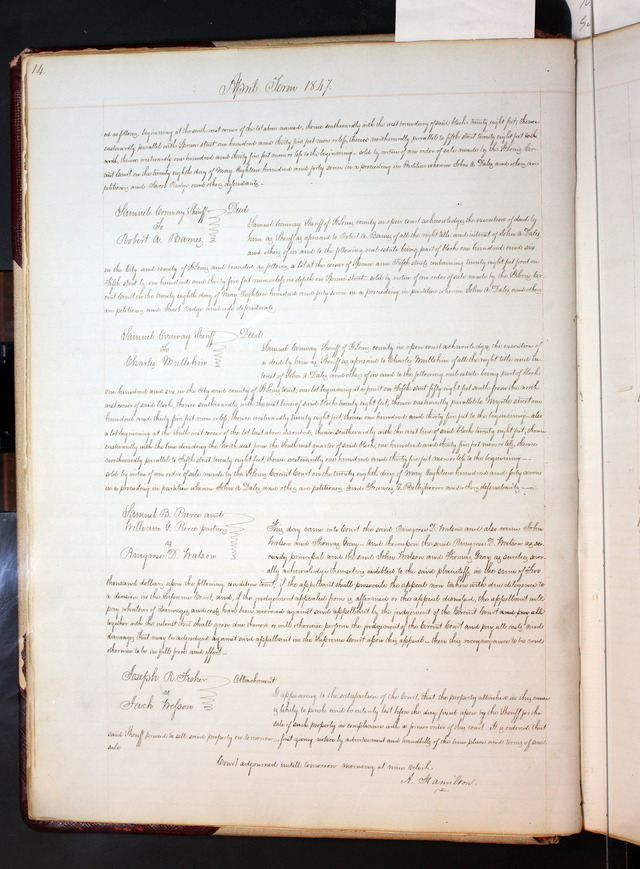 14.
April Term 1847.
ed as follows, beginning at the south west corner of the lot above named, thence southwardly with the west boundary of said block twenty eight feet, thence
eastwardly parallel with Spruce street one hundred and thirty five feet more or less, thence northwardly parallel to fifth street twenty eight feet to the
north, thence westwardly one hundred and thirty five feet more or less to the beginning - sold by virtue of an order of sale made by the Cir-
cuit Court on the twenty eighth day of May Eighteen hundred and forty seven in a proceeding in Partition wherein John A. Daley and others are
petitioners and Jacob and others defendants.
Samuel Conway Sheriff Deed
to
Robert A. Barnes
Samuel Conway Sheriff of county in open court acknowledges the execution of deed by
him as Sheriff as aforesaid to Robert A. Barnes of all the right title and interest of John A. Daley
and others of in and to the following real estate being part of block one hundred and six
in the City and county of and bounded as follows, a lot at the corner of Spruce and Fifth streets containing twenty eight feet front on
Fifth street by one hundred and thirty five feet more or less in depth on Spruce street - sold by virtue of an order of sale made by the Cir-
cuit Court on the twenty eighth day of May Eighteen hundred and forty seven in a proceeding in partition wherein John A. Daley and others
are petitioners and Jacob and wife defendants.
Samuel Conway Sheriff Deed
to
Charles Mullikin
Samuel Conway Sheriff of county in open court acknowledges the execution of
a deed by him as Sheriff as aforesaid to Charles Mullikin of all the right title and in-
terest of John A. Daley and others of in and to the following real estate being part of block
one hundred and six in the City and county of to wit, one lot beginning at a point on Fifth street fifty eight feet south from the north
west corner of said block, thence southwardly with the west line of said block twenty eight feet, thence eastwardly parallel to Myrtle street one
hundred and thirty five feet more or less, thence northwardly twenty eight feet, thence one hundred and thirty five feet to the beginning - also
a lot beginning at the Southwest corner of the lot last above described, thence southwardly with the west line of said block twenty eight feet, thence
eastwardly with the line dividing the Northwest from the Southwest quarter of said block, one hundred and thirty five feet more or less, thence
northwardly parallel to Fifth street twenty eight feet, thence westwardly one hundred and thirty five feet more or less to the beginning -
sold by virtue of an order of sale made by the Circuit Court on the twenty eighth day of May Eighteen hundred and forty seven
in a proceeding in partition wherein John A. Daley and others are petitioners and and others defendants.
Samuel B. Pierce and
William G. Pierce partners
vs
D. Watson
This day came into Court the said D. Watson and also came John
Watson and Thomas Gray - and thereupon the said D. Watson as
principal and the said John Watson and Thomas Gray as sureties sever-
ally acknowledge themselves indebted to the said plaintiffs in the sum of Two
thousand dollars upon the following conditions to wit, if the appellant shall prosecute the appeal now taken with due diligence to
a decision in the Supreme Court, and, if the judgement appealed from is affirmed or the appeal dismissed, the appellant will
pay whatever of damages and costs have been recovered against said appellant by the judgement of the Circuit Court and pay all
together with the interest that shall grow due thereon or will otherwise perform the judgement of the Circuit Court and pay all costs and
damages that may be adjudged against said appellant in the Supreme Court upon this appeal - then this recognizance to be void
otherwise to be in full force and effect -
Joseph R. Fisher Attachment
vs
Jack
It appearing to the satisfaction of the Court that the property attached in this cause
is likely to perish and be entirely lost before the day fixed upon by the Sheriff for the
sale of such property in compliance with a former order of this court. It is ordered that
said Sheriff proceed to sell said property on tomorrow - first giving notice by advertisement and handbills of the time place and terms of said
sale
Court adjourned untill tomorrow morning at nine oclock
A. Hamilton.